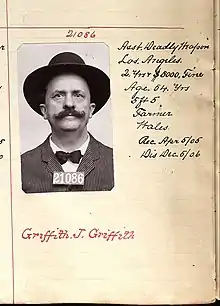 21086
Asst. Deadly Weapon
Los Angeles.
2 Yrs & $5000, Fine
Age. 54. Yrs
5 ft 5
Farmer
Wales.
Rec Apr 5/05
Dis Dec 5/06
21086
Griffith. J. Griffith